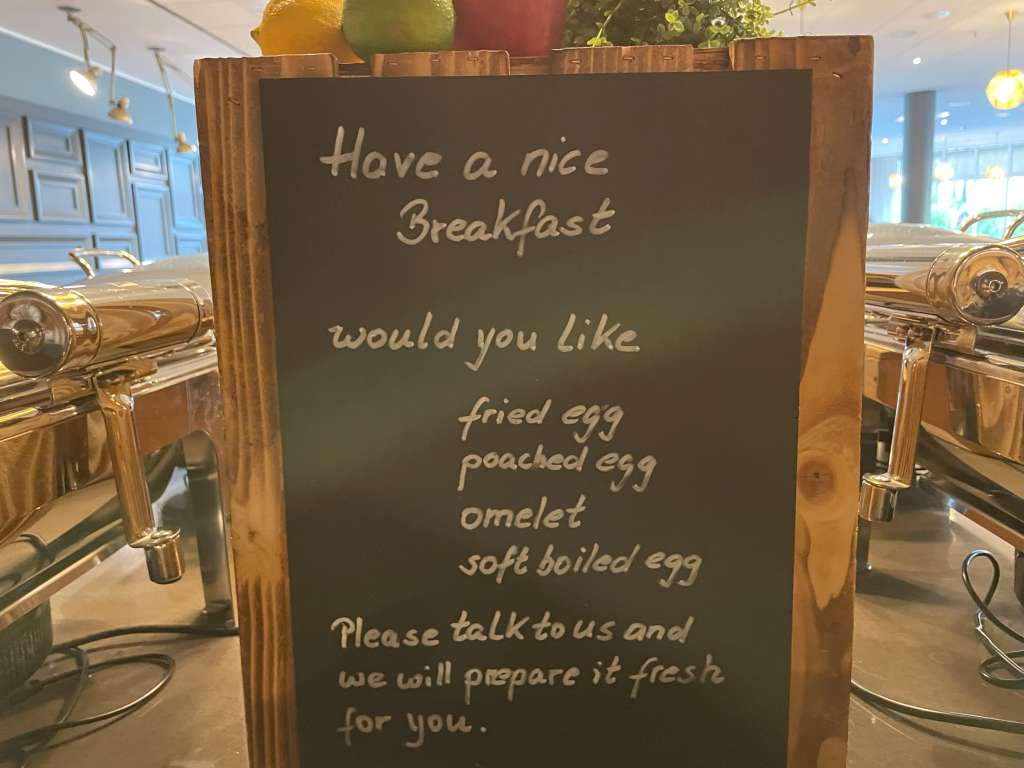 Have a nice
Breakfast
would you like
fried egg
poached egg
omelet
soft boiled egg
Please talk to us and
we will prepare it fresh
for you.